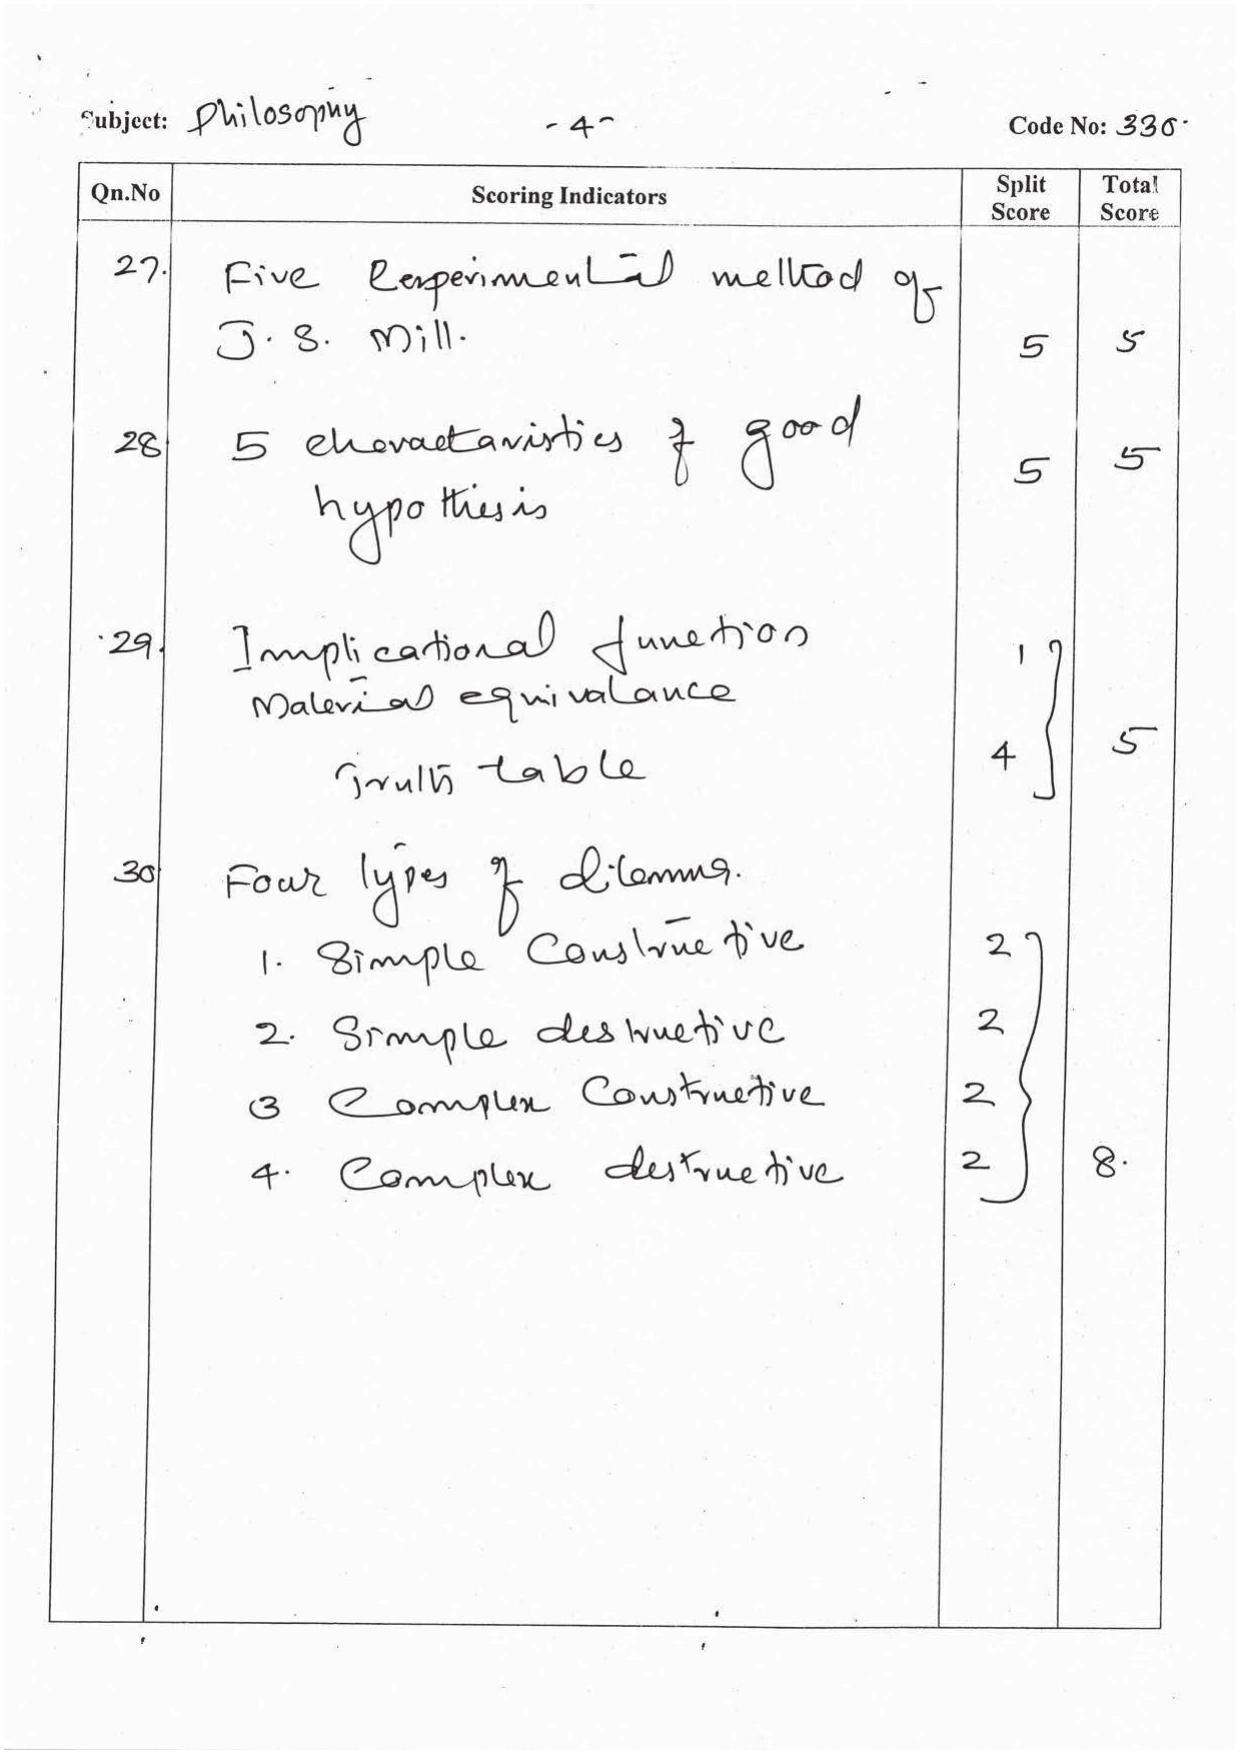 Subject: Philosophy
- 4 -
Code No: 330
Qn.No Scoring Indicators Split Score Total Score
27. Five Experimental method of
J. S. Mill. 5 5
28 5 charactaristics of good
hypothesis 5 5
29. Implicational function 1
Material equivalance
Truth table 4 5
30 Four types of dilemma.
1. Simple Constructive 2
2. Simple destructive 2
3 Complex Constructive 2
4. Complex destructive 2 8.